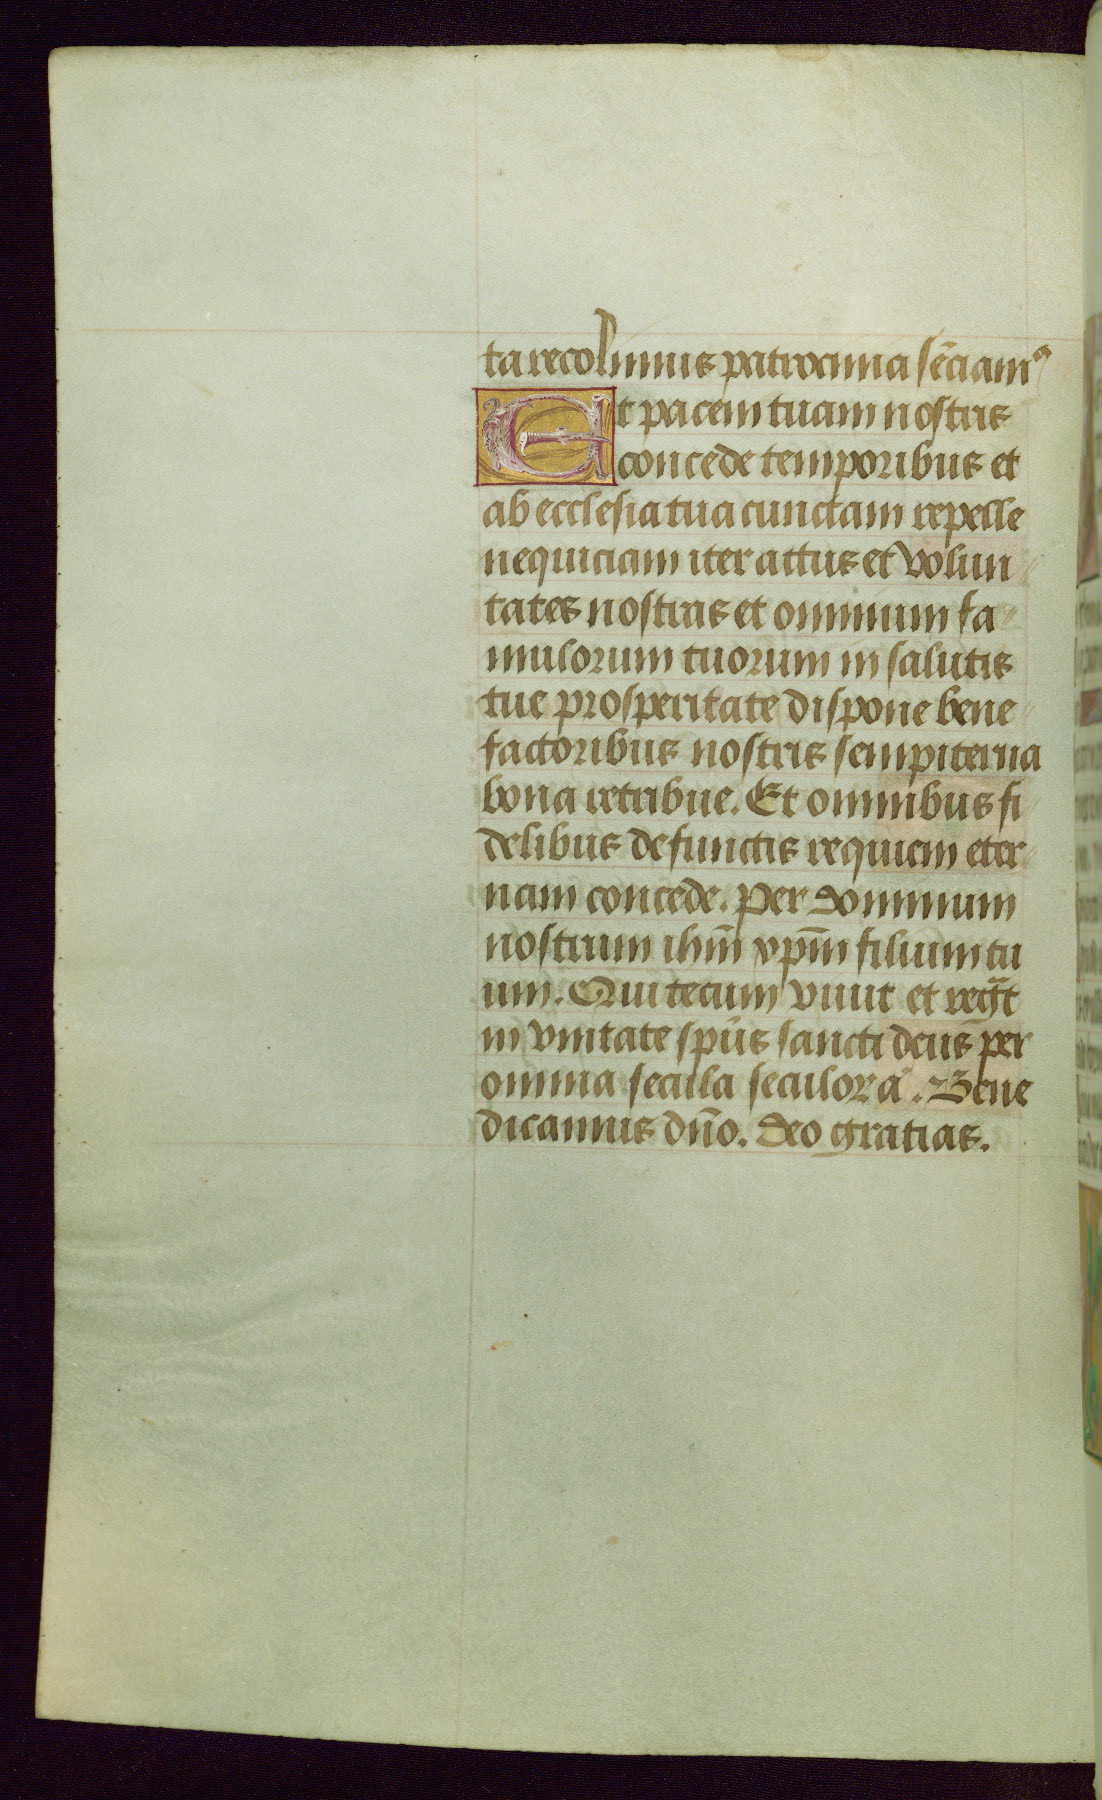 ta recolimus patrocinia sēciamꝰ
Et pacem tuam nostris
concede temporibus et
ab ecclesia tua cunctam repelle
nequiciam iter actus et volun
tates nostras et omnium fa
mulorum tuorum in salutis
tue prosperitate dispone bene
factoribus nostris sempiterna
bona retribue. Et omnibus fi
delibus defunctis requiem eter
nam concede. Per dominum
nostrum ihm̄ xp̄m filium tu
um. Qui tecum viuit et regᷓt
in vnitate spūs sancti deus per
omnia secula seculorā. Bene
dicamus dn̄o. Deo gratias.